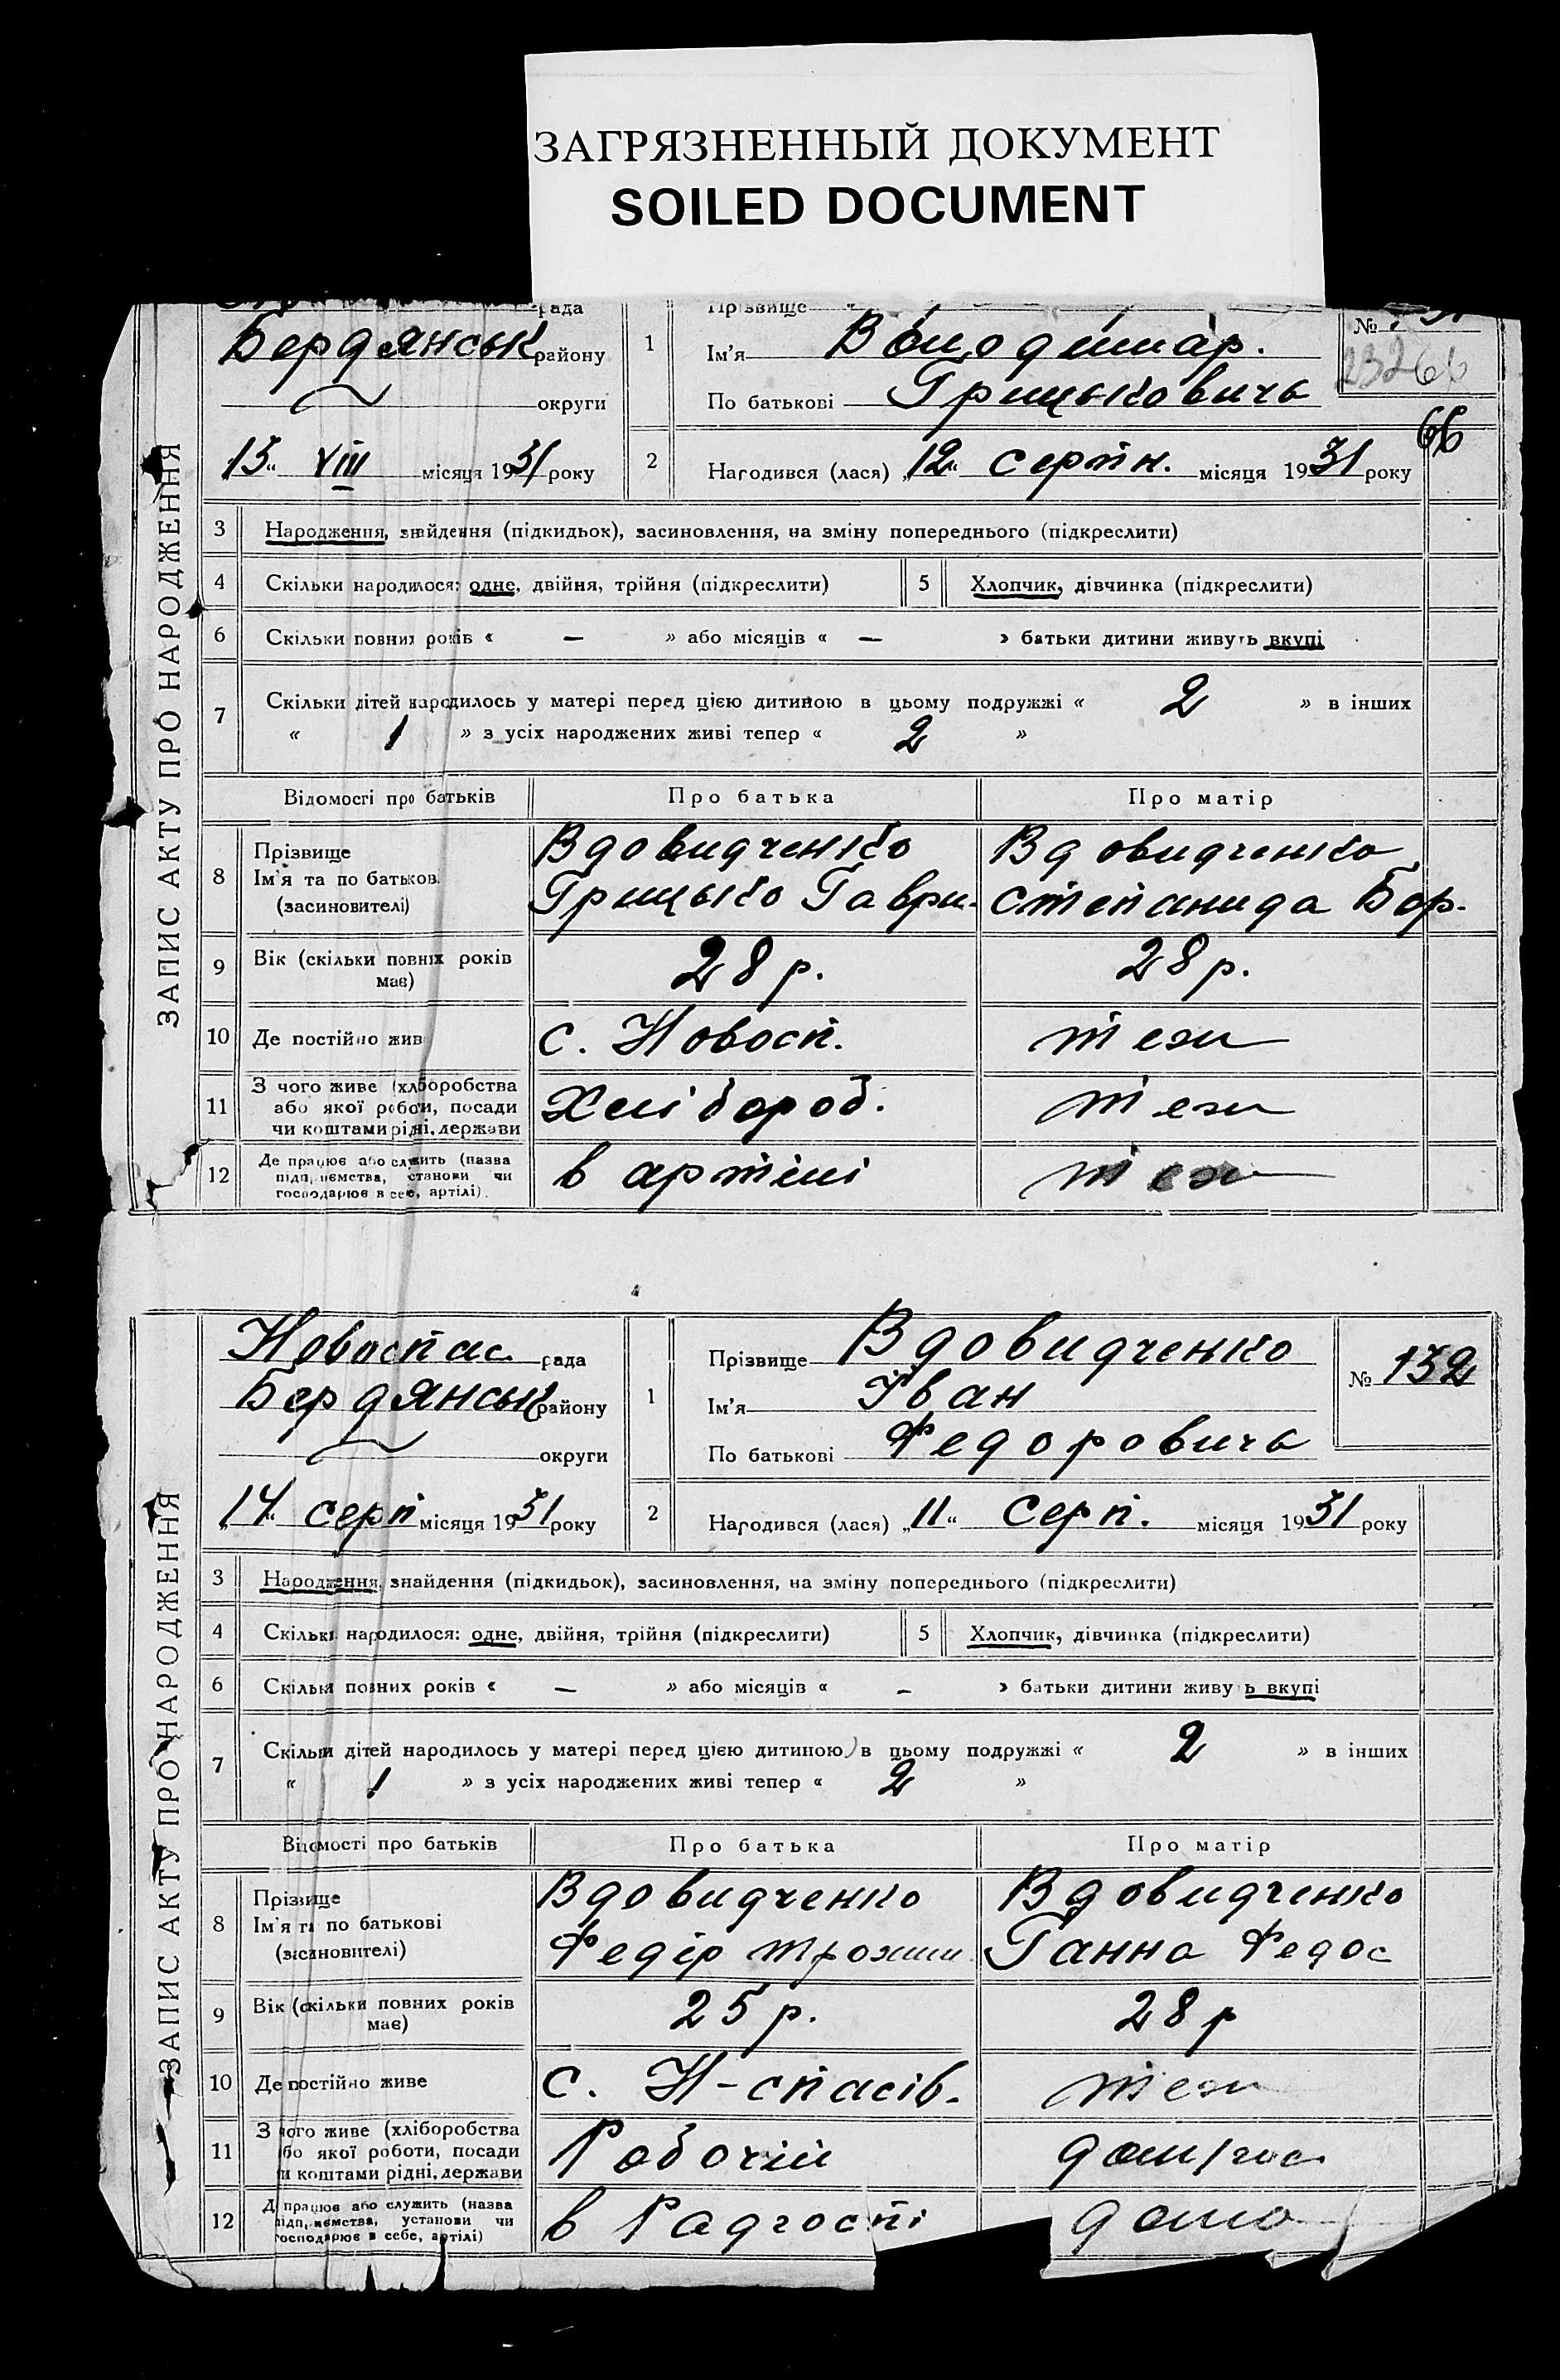 ЗАГРЯЗНЕННЫЙ ДОКУМЕНТ
SOILED DOCUMENT
рада
Прізвище
Бердянськ району
1
Ім'я Володимар.
№
округи
По батькові Грицькович
66
13 VIII місяця 1931 року
2
Нагодився (лася) „12“ серпн. місяця 1931 року
ЗАПИС АКТУ ПРО НАРОДЖЕННЯ
3 Народження, знайдення (підкидьок), засиновлення, на зміну попереднього (підкреслити)
4 Скільки народилося: одне, двійня, трійня (підкреслити) 5 Хлопчик, дівчинка (підкреслити)
6 Скільки повних років « — » або місяців « — » батьки дитини живуть вкупі
7 Скільки дітей народилось у матері перед цією дитиною в цьому подружжі « 2 » в інших
« 1 » з усіх народжених живі тепер « 2 »
Відомості про батьків Про батька Про матір
8 Прізвище Вдовидченко Вдовидченко
Ім'я та по батьков. Грицько Гаври. Степанида Бор.
(засиновителі)
9 Вік (скільки повних років має) 28 р. 28 р.
10 Де постійно жив с. Новосп. теж
11 З чого живе (хліборобства
або якої роботи, посади Хлібороб. теж
чи коштами рідні, держави
12 Де працює або служить (назва
підприємства, установи чи в артілі теж
господарює в себе, артілі).
Новоспас. рада
1
Прізвище Вдовидченко
№ 132
Бердянськ району
Ім'я Іван
округи
По батькові Федорович
„14“ серп місяця 1931 року
2
Нагодився (лася) „11“ Серп. місяця 1931 року
ЗАПИС АКТУ ПРО НАРОДЖЕННЯ
3 Народження, знайдення (підкидьок), засиновлення, на зміну попереднього (підкреслити)
4 Скільки народилося: одне, двійня, трійня (підкреслити) 5 Хлопчик, дівчинка (підкреслити)
6 Скільки повних років « — » або місяців « — » батьки дитини живу ь вкупі
7 Скільки дітей народилось у матері перед цією дитиною в цьому подружжі « 2 » в інших
« 1 » з усіх народжених живі тепер « 2 »
Відомості про батьків Про батька Про матір
8 Прізвище Вдовидченко Вдовидченко
Ім'я та по батькові Федір Трохим Ганна Федос
(засиновителі)
9 Вік (скільки повних років має) 25 р. 28 р
10 Де постійно живе с. Н-спасів. теж
11 З чого живе (хліборобства
або якої роботи, посади Робочій дом/гос.
чи коштами рідні, держави
12 Де працює або служить (назва
підприємства, установи чи в Радгоспі дома
господарює в себе, артілі)